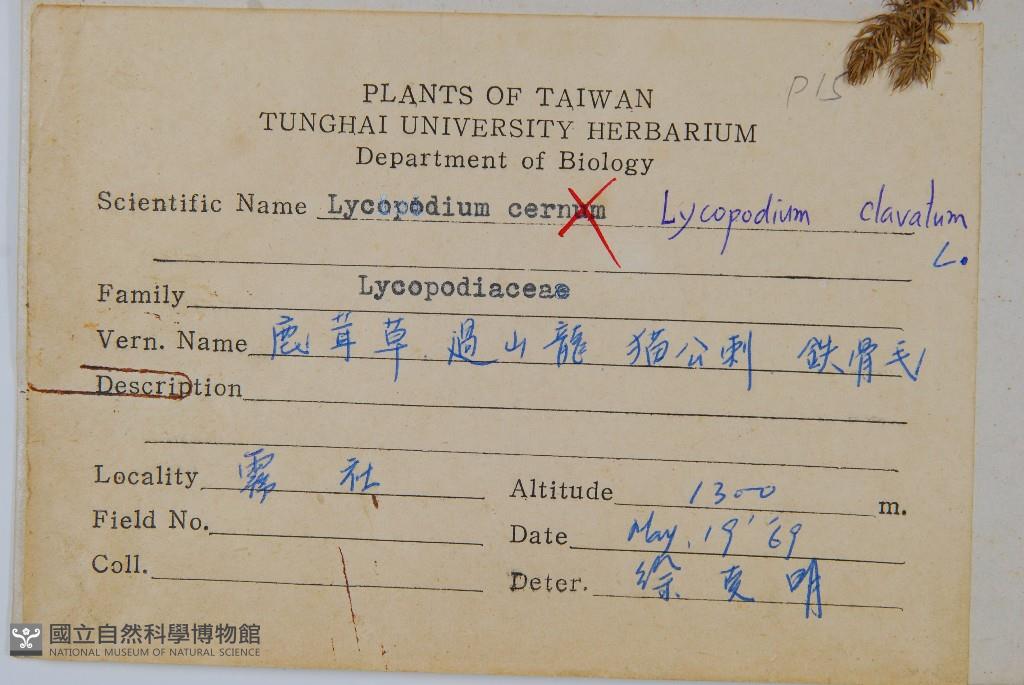 P15
PLANTS OF TAIWAN
TUNGHAI UNIVERSITY HERBARIUM
Department of Biology
Scientific Name Lycopodium cernum Lycopodium clavatum
L.
Family Lycopodiaceae
Vern. Name 鹿茸草 過山龍 猫公刺 鉄骨毛
Description
Locality 霧社 Altitude 1300 m.
Field No. Date May, 19 '69
Coll. Deter. 徐克明
國立自然科學博物館
NATIONAL MUSEUM OF NATURAL SCIENCE